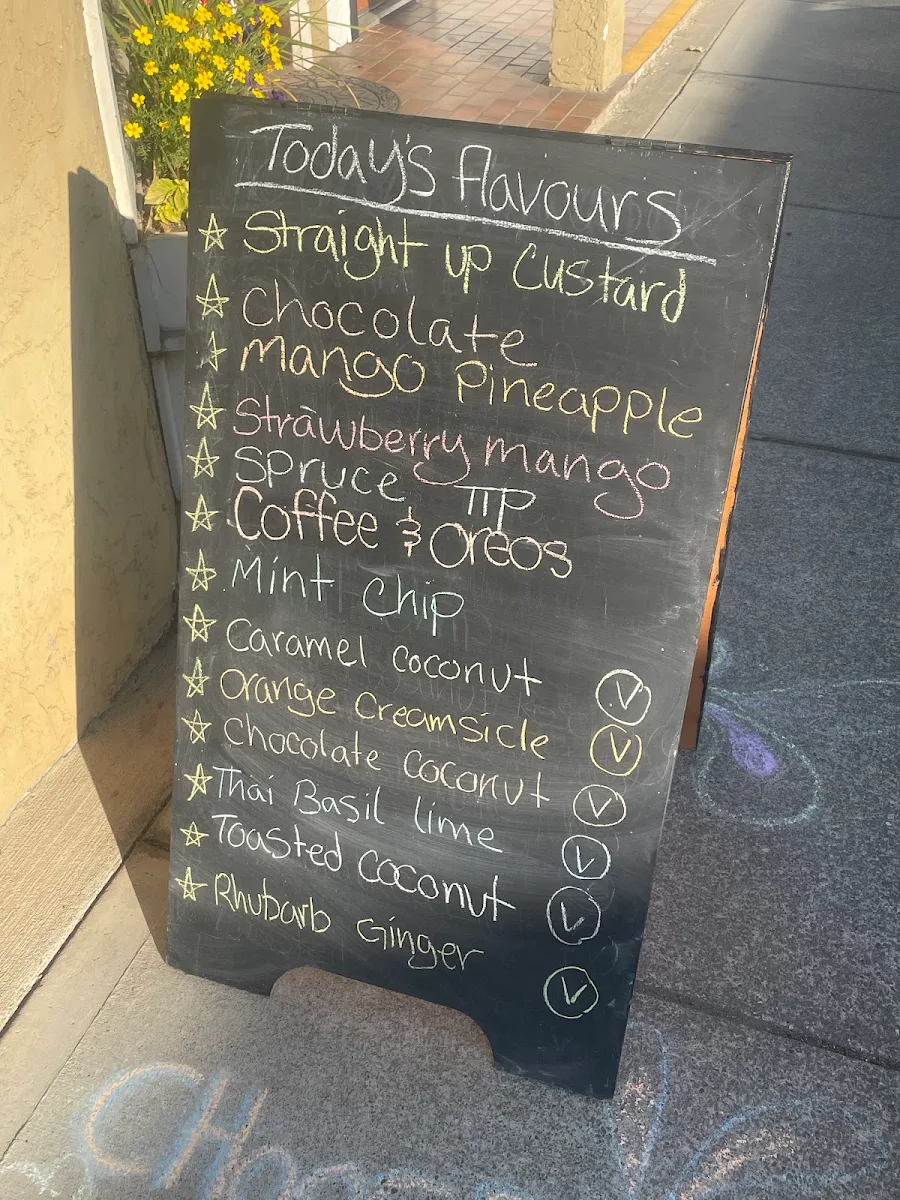 Today's Flavours
☆ Straight up Custard
☆ Chocolate
☆ Mango Pineapple
☆ Strawberry mango
☆ Spruce TIP
☆ Coffee & Oreos
☆ Mint chip
☆ Caramel coconut Ⓥ
☆ Orange Creamsicle Ⓥ
☆ Chocolate coconut Ⓥ
☆ Thai Basil lime Ⓥ
☆ Toasted coconut Ⓥ
☆ Rhubarb Ginger Ⓥ